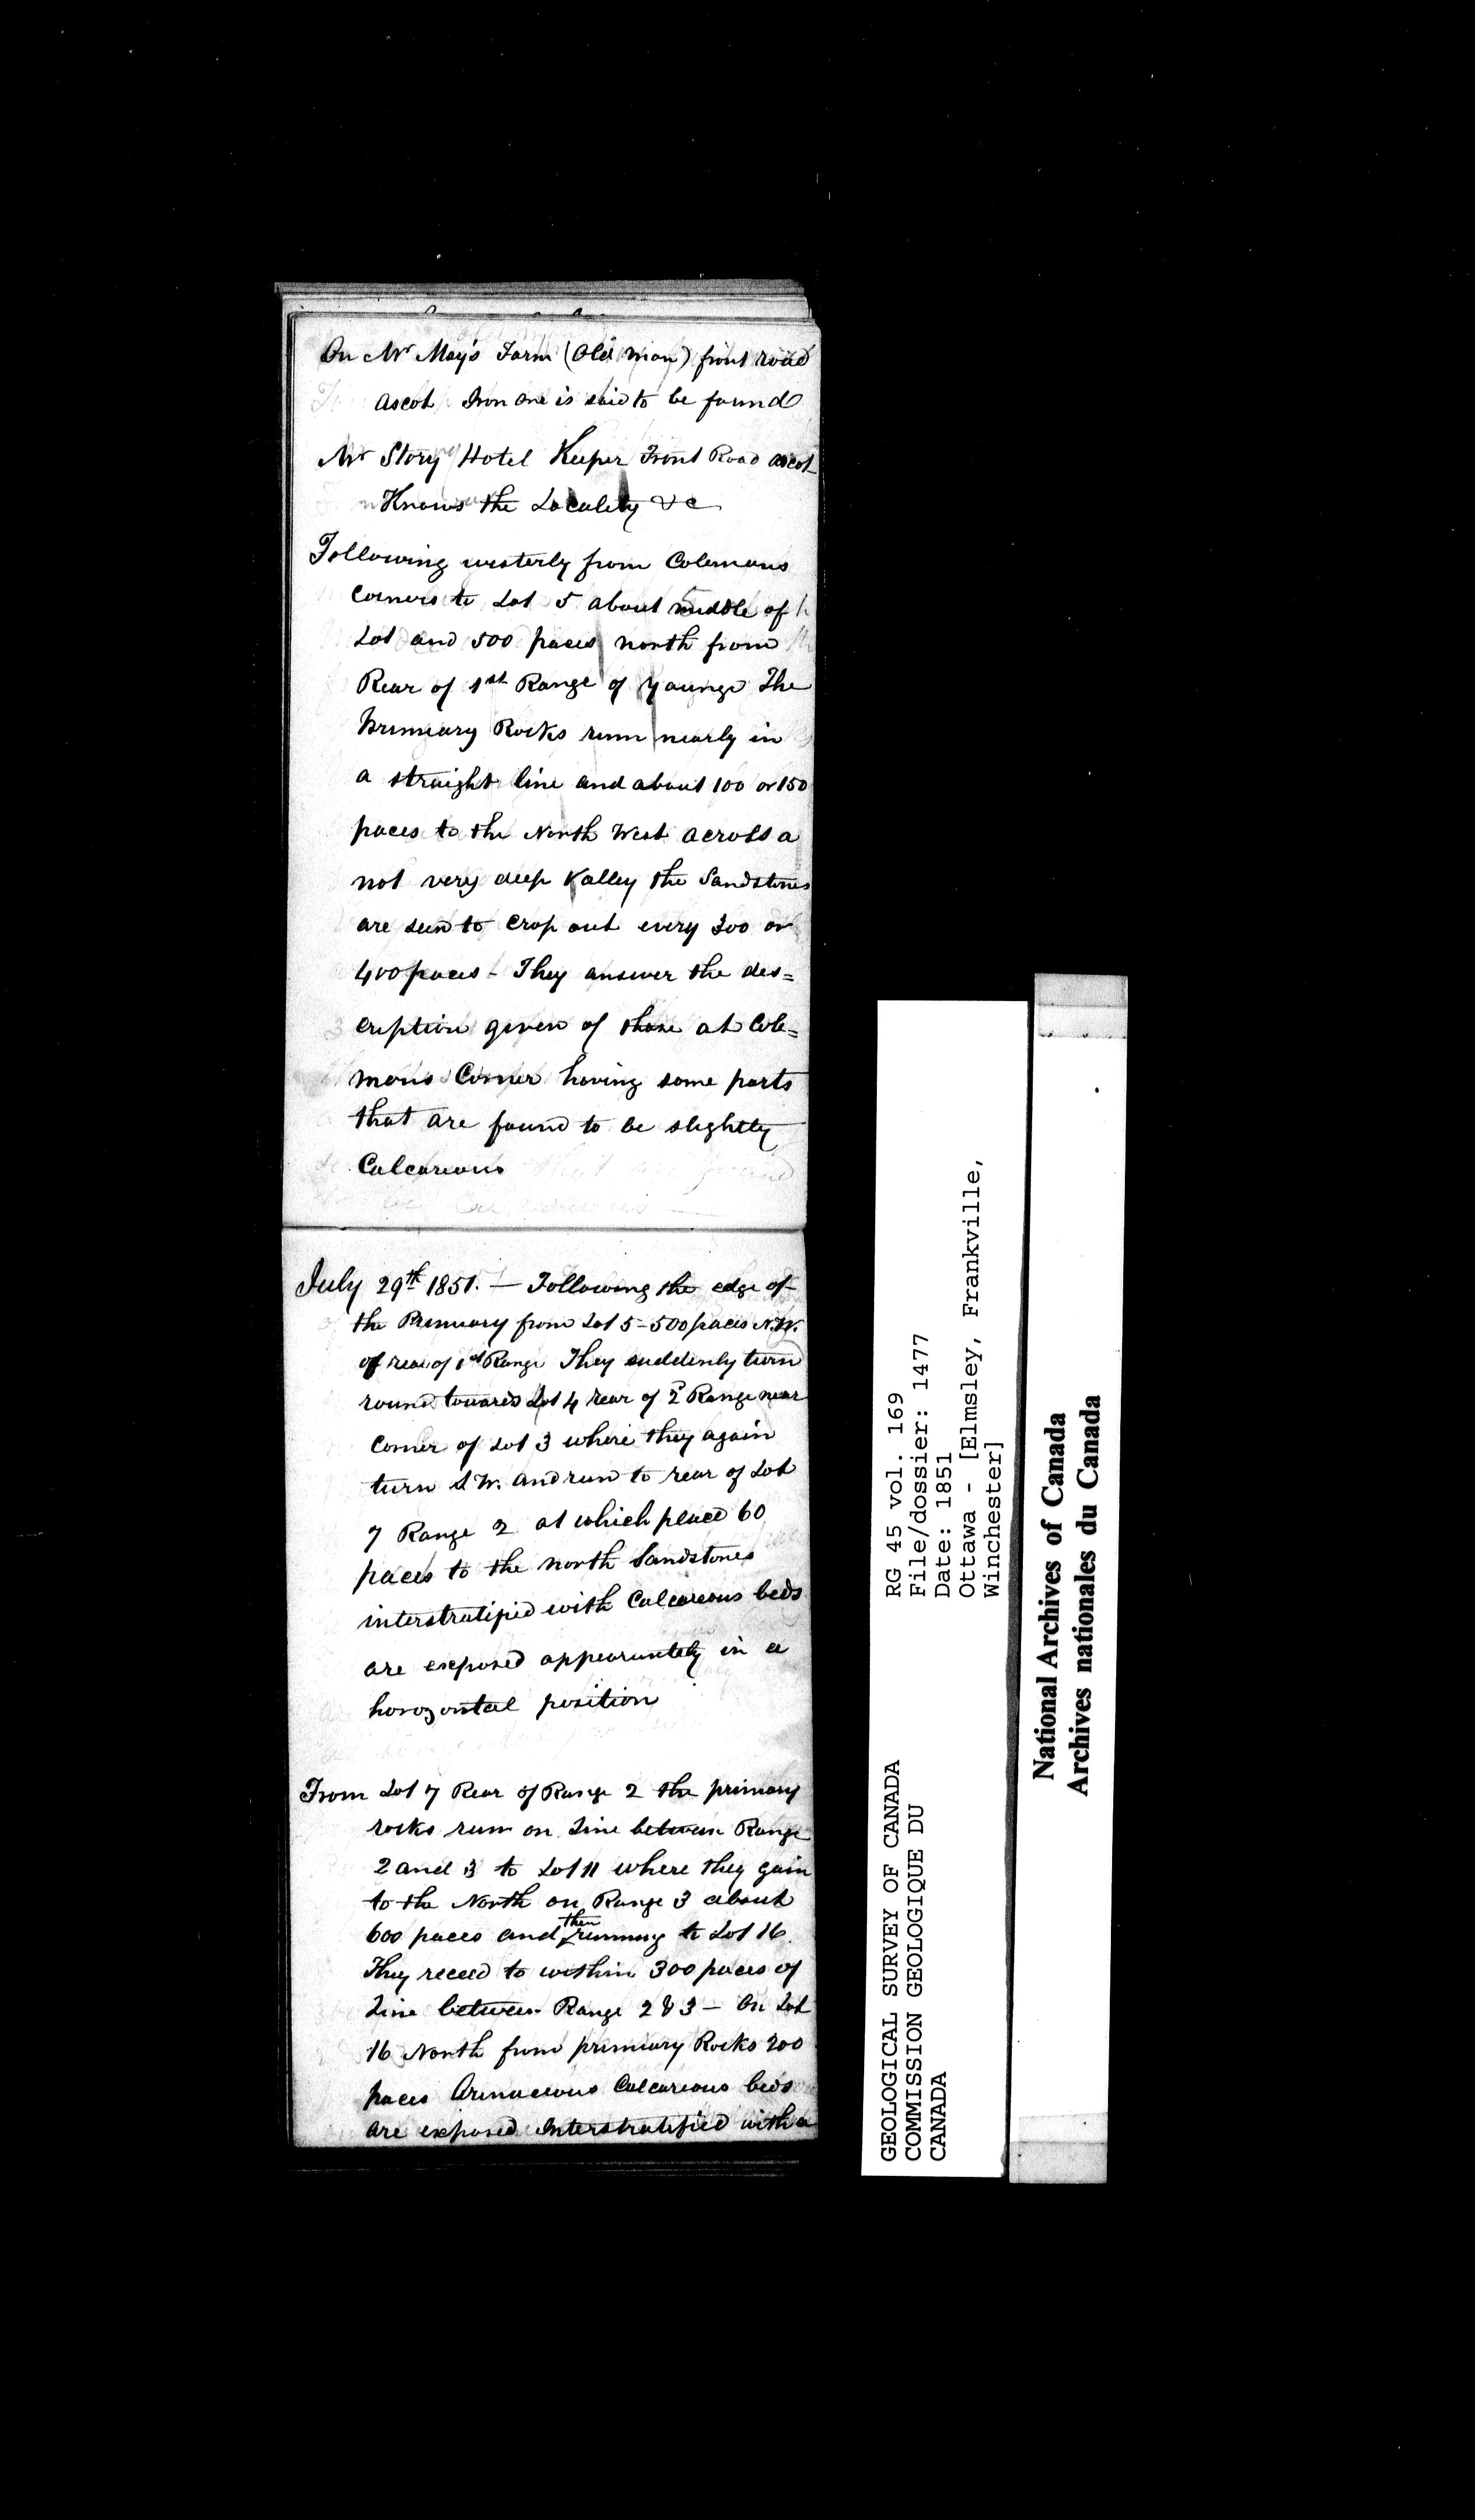 On Mr May's Farm (Old man) front road
ascot Iron ore is said to be found
Mr Story Hotel Keeper Front Road ascot
Knows the Locality &c
Following westerly from Colemans
Corners to Lot 5 about middle of
Lot and 500 paces north from
Rear of 1st Range of Younge The
Primary Rocks runn nearly in
a straight line and about 100 or 150
paces to the North West across a
not very deep Valley the Sandstones
are seen to crop out every 300 or
400 paces - They answer the des=
cription given of those at Cole=
mans Corner having some parts
that are found to be slightly
Calcareous
July 29th 1851. — Following the edge of
the Primary from Lot 5 - 500 paces N.W.
of rear of 1st Range They suddenly turn
round towards Lot 4 rear of 2d Range near
Corner of Lot 3 where they again
turn S W. and run to rear of Lot
7 Range 2 at which place 60
paces to the north Sandstones
interstratified with Calcareous beds
are exposed appearantely in a
horozontal position
From Lot 7 Rear of Range 2 the primary
rocks runn on Line between Range
2 and 3 to Lot 11 where they gain
to the North on Range 3 about
600 paces and then running to Lot 16
They receed to within 300 paces of
Line between Range 2 & 3 — On Lot
16 North from primary Rocks 200
paces Arenaceous Calcareous beds
are exposed Interstratified with a
GEOLOGICAL SURVEY OF CANADA
COMMISSION GEOLOGIQUE DU
CANADA
RG 45 vol. 169
File/dossier: 1477
Date: 1851
Ottawa - [Elmsley, Frankville,
Winchester]
National Archives of Canada
Archives nationales du Canada